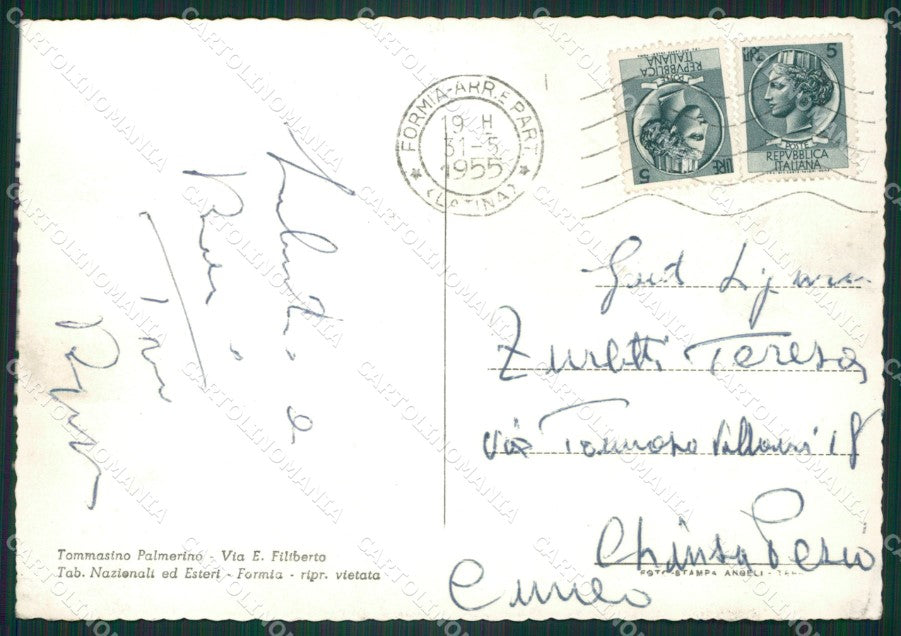 FORMIA-ARR. E PART.
19 H
31-5
1955
(LATINA)
5 LIRE
POSTE
REPVBBLICA
ITALIANA
5
POSTE
REPVBBLICA
ITALIANA
Saluti e
Baci
Gent Signora
Zuretti Teresa
via Tommaso Villani 18
Chiusa Pesio
Cuneo
Tommasino Palmerino - Via E. Filiberto
Tab. Nazionali ed Esteri - Formia - ripr. vietata
FOTOSTAMPA ANGELI
CARTOLINOMANIA